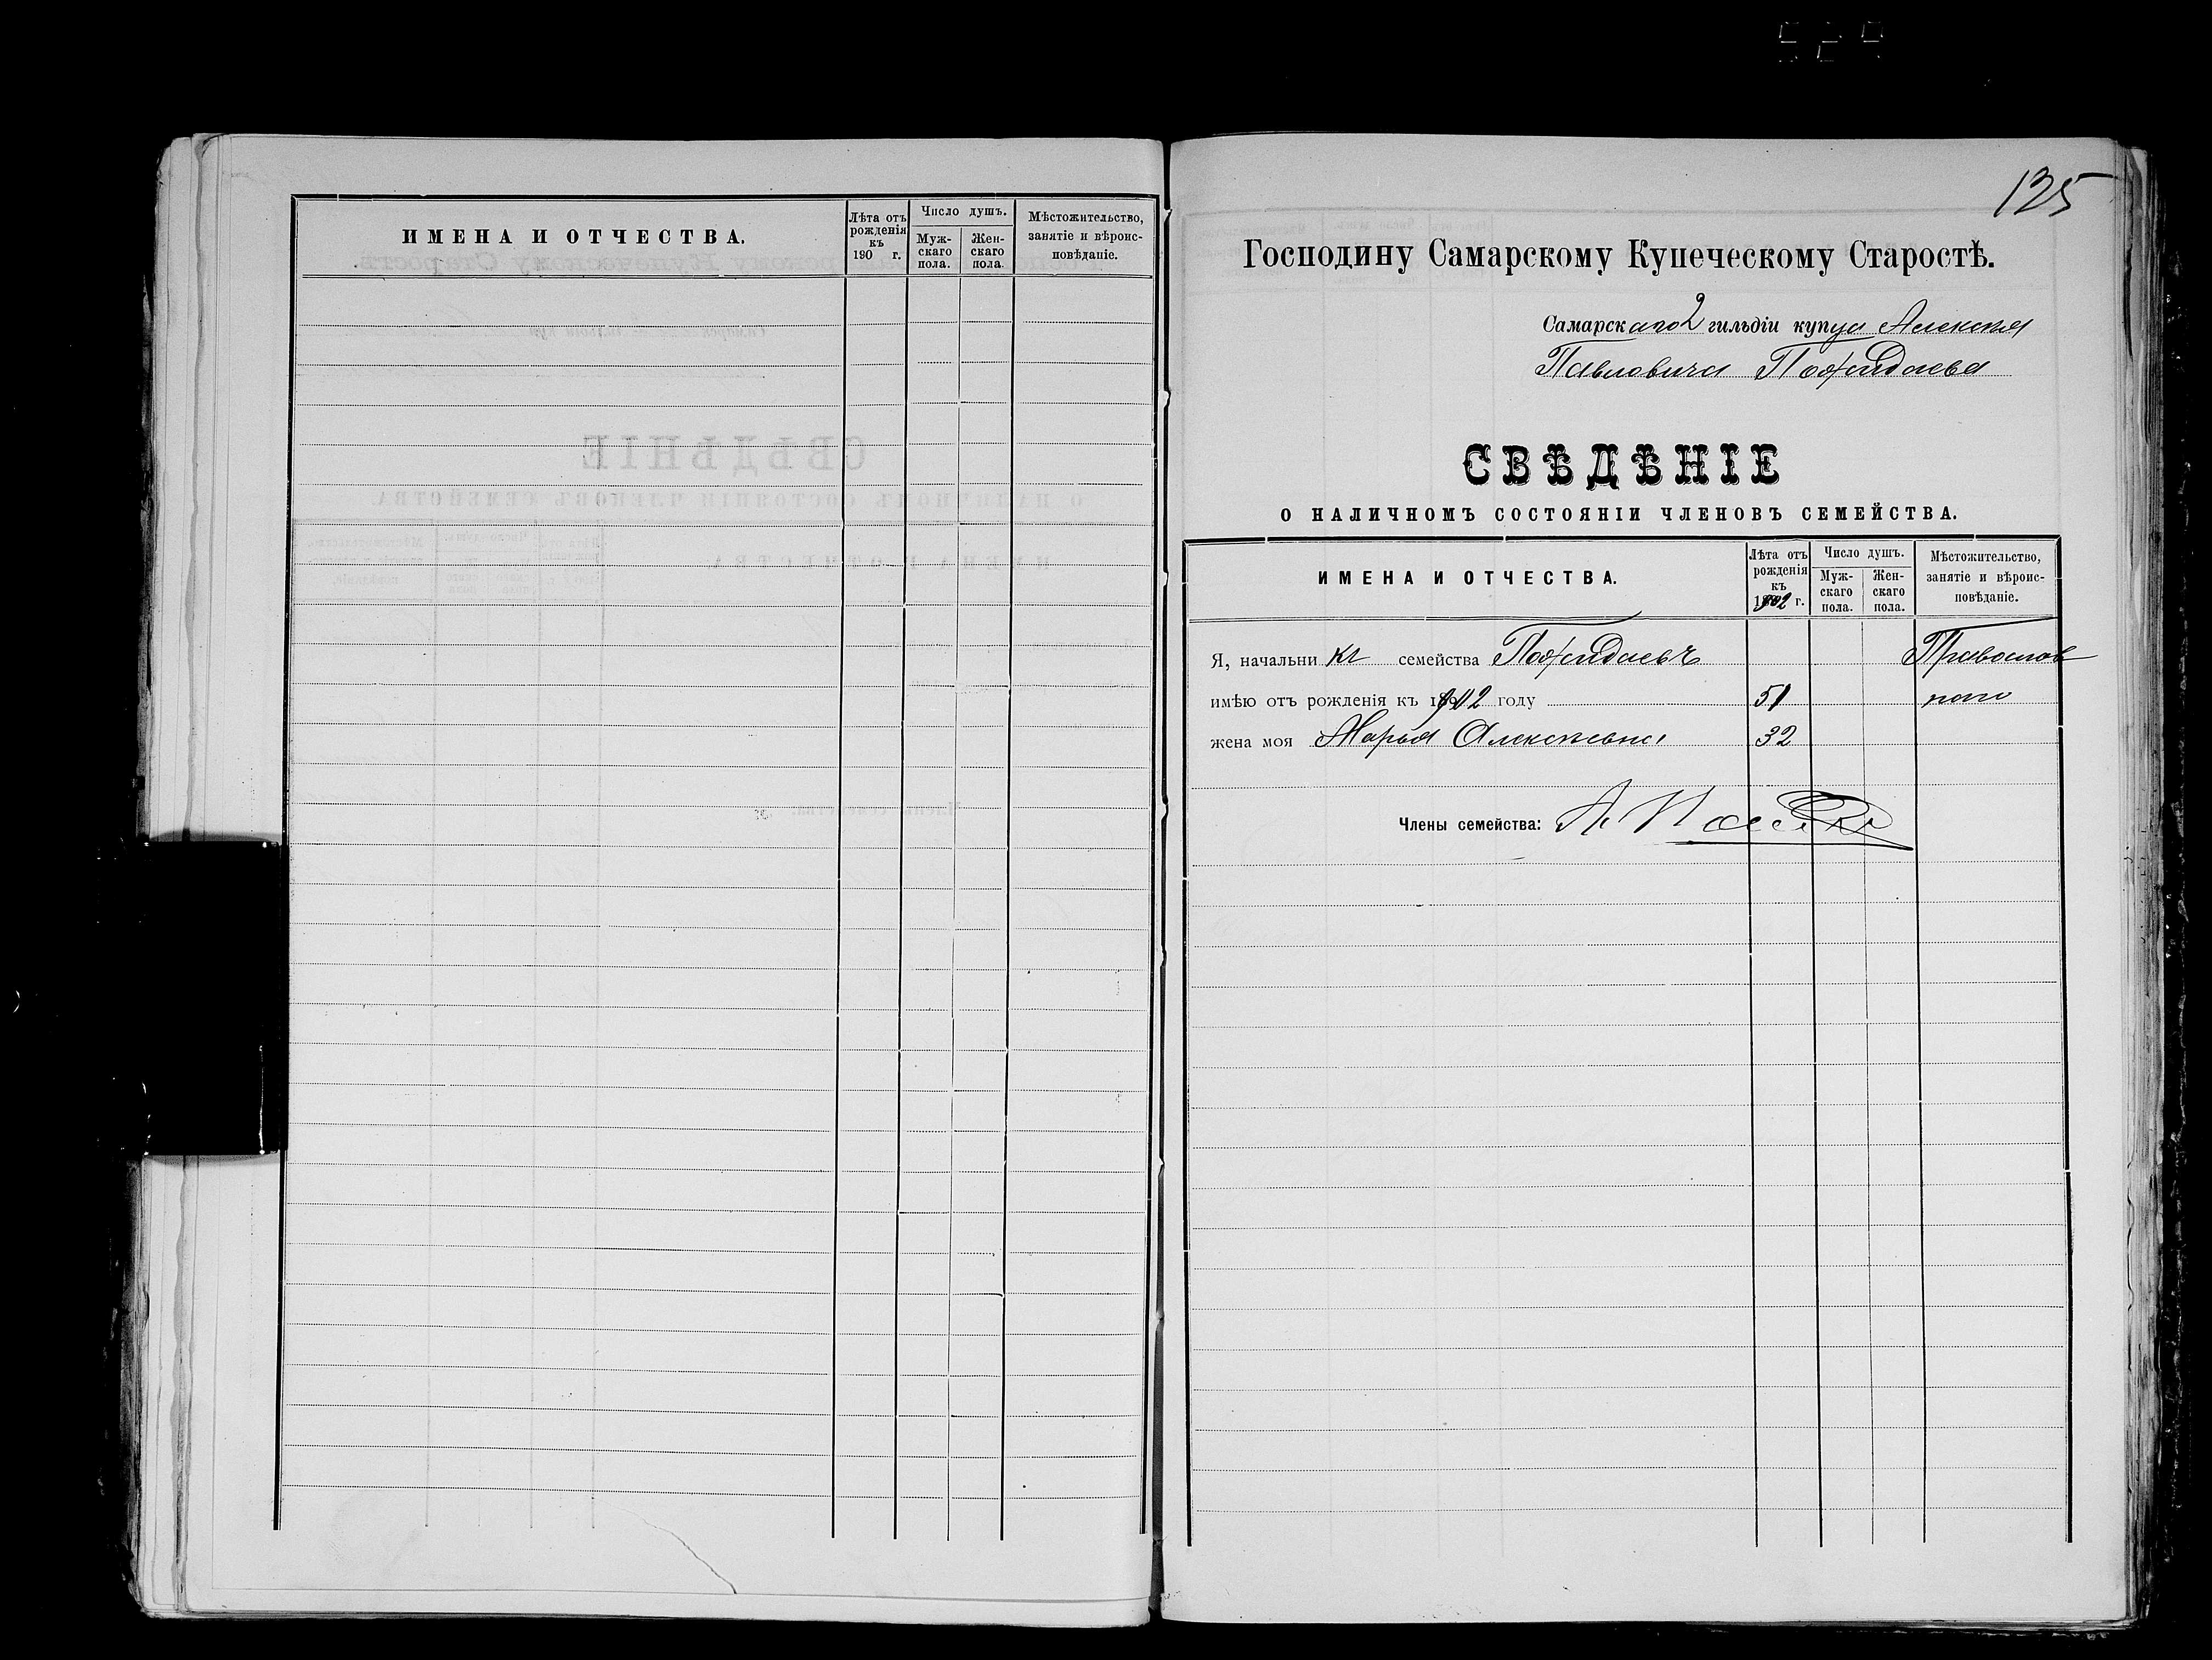 529
ИМЕНА И ОТЧЕСТВА.
Лѣта отъ рожденія къ 190 г.
Число душъ.
Муж-скаго пола.
Жен-скаго пола.
Мѣстожительство, занятіе и вѣроис-повѣданіе.
125
Господину Самарскому Купеческому Старостѣ.
Самарскаго 2 гильдіи купца Алексѣя
Павловича
СВѢДѢНІЕ
О НАЛИЧНОМЪ СОСТОЯНІИ ЧЛЕНОВЪ СЕМЕЙСТВА.
ИМЕНА И ОТЧЕСТВА.
Лѣта отъ рожденія къ 1902 г.
Число душъ.
Муж-скаго пола.
Жен-скаго пола.
Мѣстожительство, занятіе и вѣроис-повѣданіе.
Я, начальникъ семейства Православ
имѣю отъ рожденія къ 1902 году 51 наго
жена моя Марья Алексѣевна 32
Члены семейства: